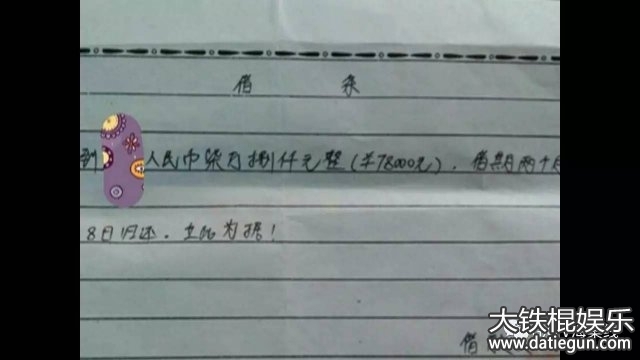 借 条
到 人民币柒万捌仟元整(￥78000元),借期两个月
8日归还.立此为据!
借
大铁棍娱乐
www.datiegun.com